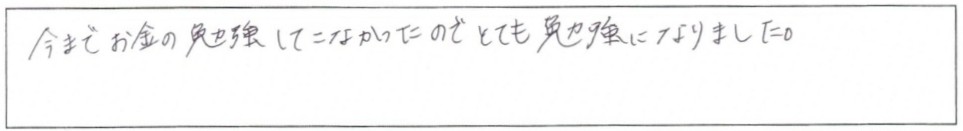 今までお金の勉強してこなかったのでとても勉強になりました。